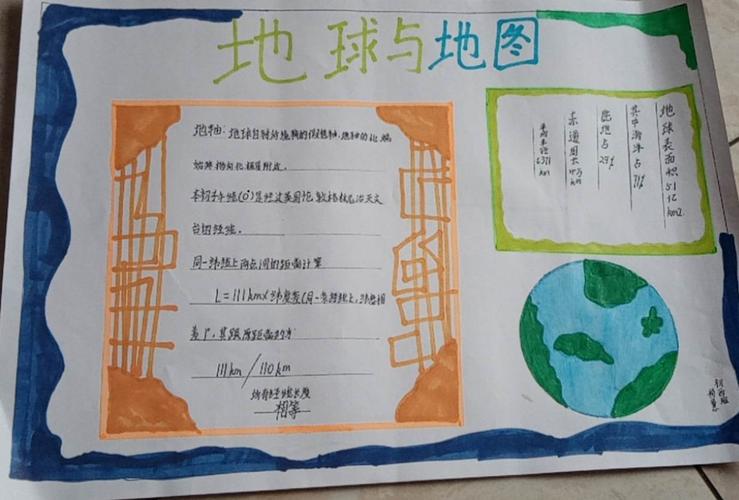 地球与地图
地轴：地球自转所绕转的假想轴，地轴的北端
始终指向北极星附近。
本初子午线(0°)是经过英国伦敦格林尼治天文
台的经线。
同一经线上两点间的距离计算
L=111km×纬度差(同一条经线上,纬度相
差1°,其跟原距离约为
111km/110km
所有经线长度
相等
地球表面积5.1亿km2
其中海洋占71%
陆地占29%
赤道周长4万km
平均半径6371km